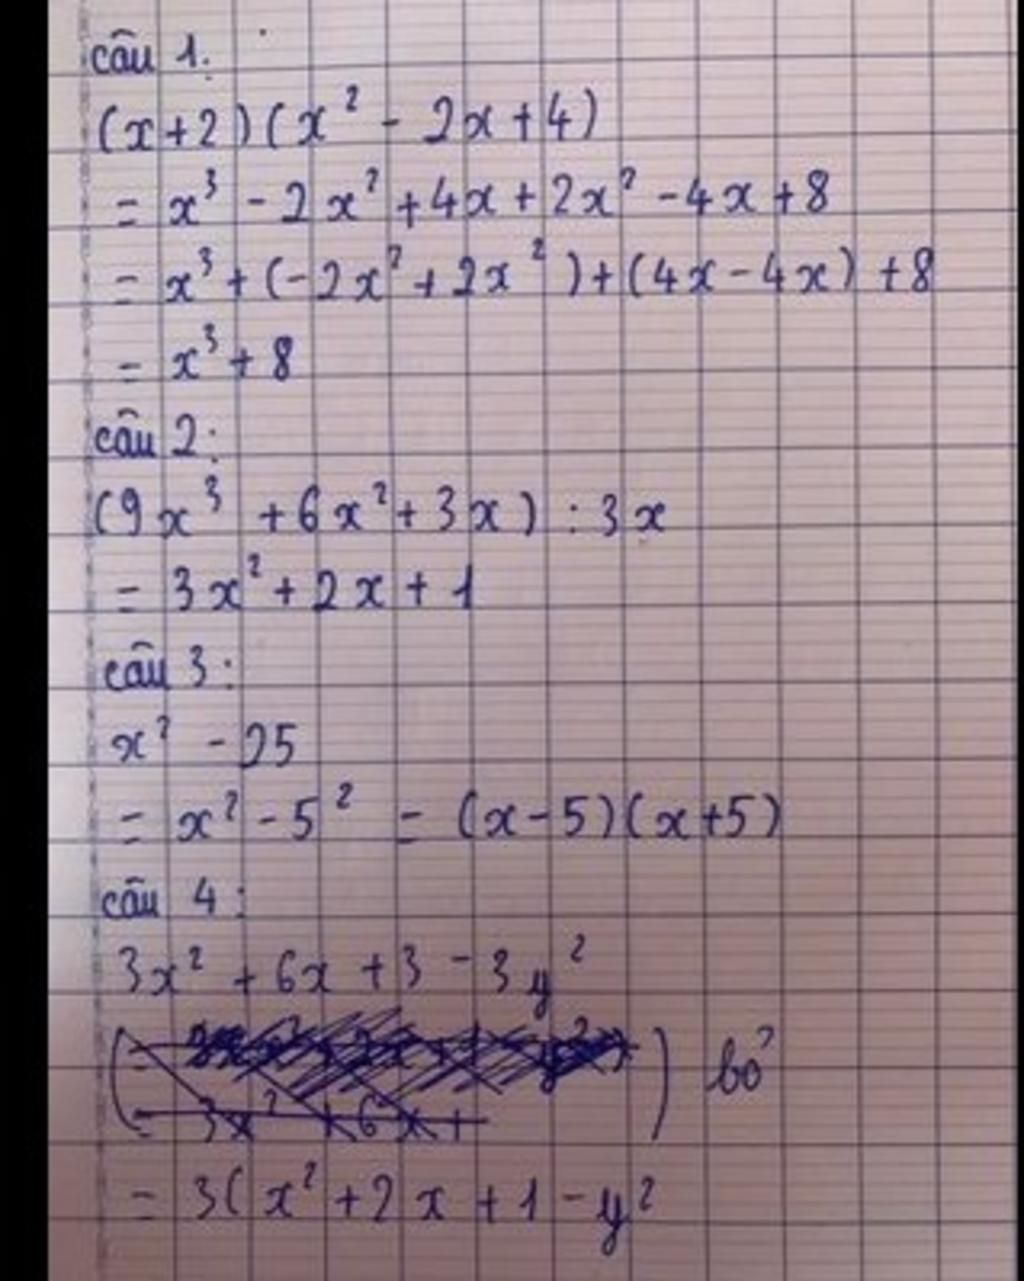 câu 1:
(x+2)(x² - 2x+4)
= x³ - 2x² +4x+2x² -4x+8
= x³+(-2x²+2x²)+(4x-4x)+8
= x³+8
câu 2:
(9x³ +6x²+3x) : 3x
= 3x²+2x+1
câu 3:
x² - 25
= x² - 5² = (x-5)(x+5)
câu 4:
3x² + 6x +3 - 3y²
bỏ
= 3x² + 6x +
= 3(x² +2x +1 - y²